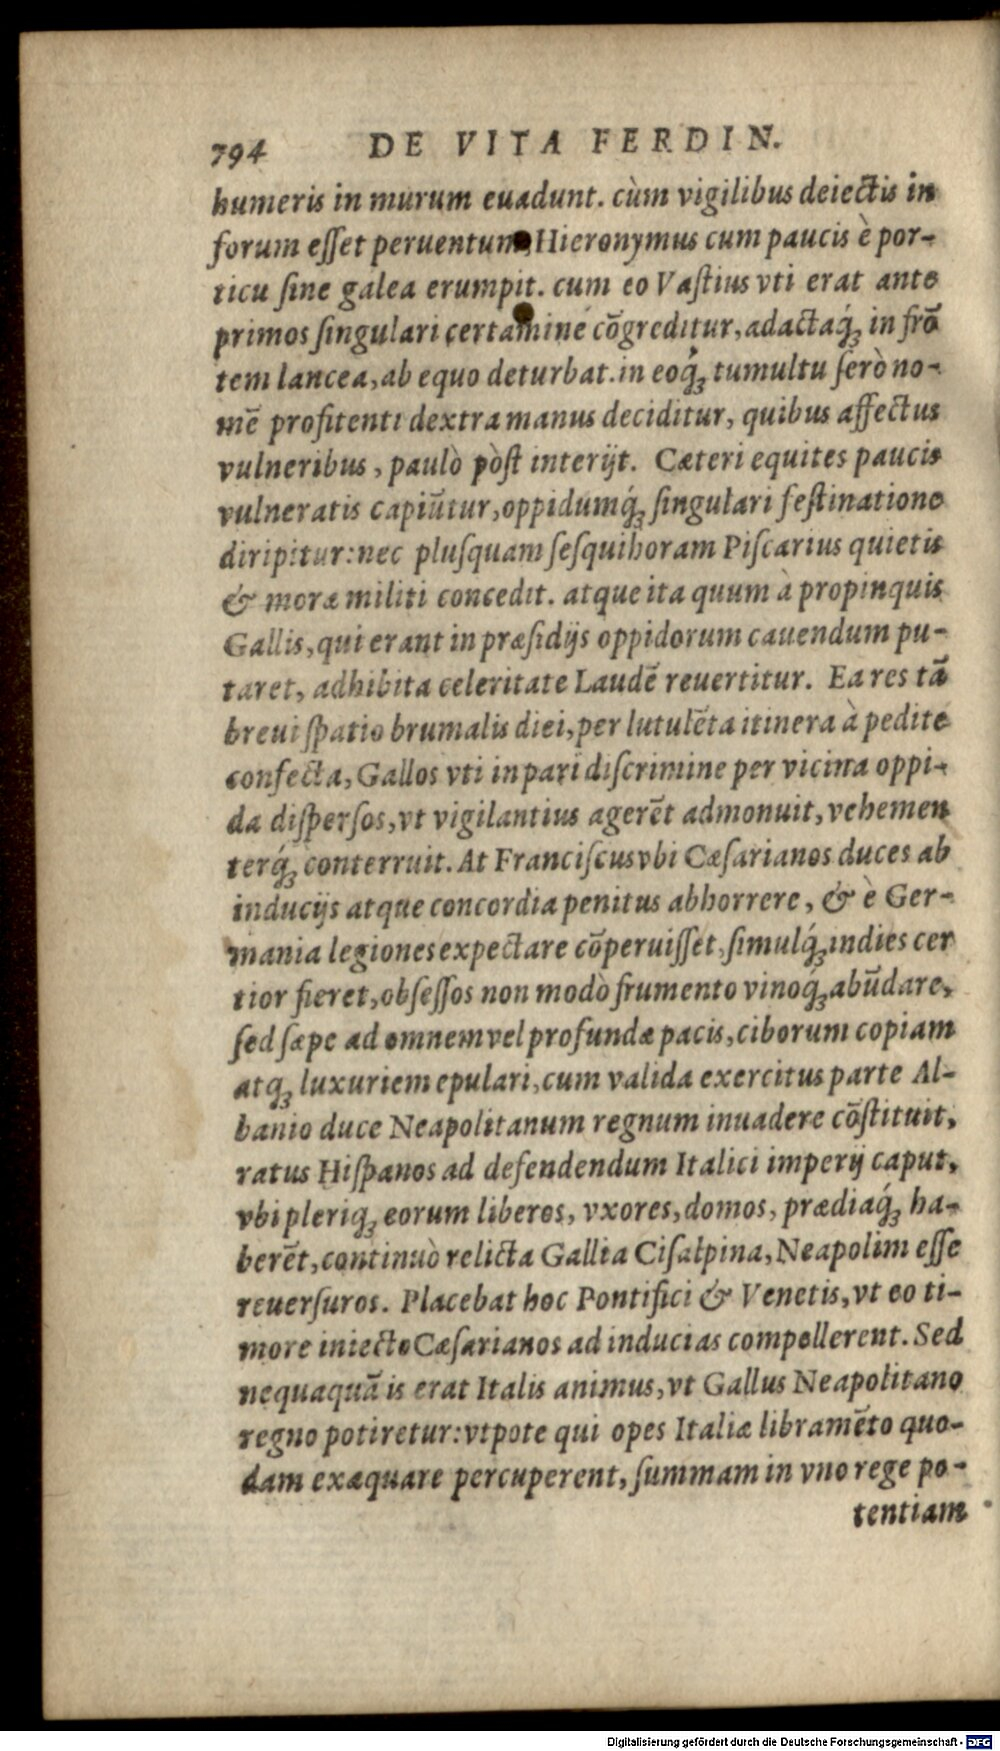 794 DE VITA FERDIN.
humeris in murum euadunt. cùm vigilibus deiectis in
forum eſſet peruentum, Hieronymus cum paucis è por-
ticu ſine galea erumpit. cum eo Vaſtius vti erat ante
primos ſingulari certamine cōgreditur, adactaq́; in frō
tem lancea, ab equo deturbat. in eoq́; tumultu ſerò no-
mē profitenti dextra manus deciditur, quibus affectus
vulneribus, paulò pòſt interijt. Cæteri equites paucis
vulneratis capiūtur, oppidumq́; ſingulari feſtinatione
diripitur: nec pluſquam ſeſquihoram Piſcarius quietis
& moræ militi concedit. atque ita quum à propinquis
Gallis, qui erant in præſidijs oppidorum cauendum pu-
taret, adhibita celeritate Laudē reuertitur. Ea res tā
breui ſpatio brumalis diei, per lutulēta itinera à pedite
confecta, Gallos vti in pari diſcrimine per vicina oppi-
da diſperſos, vt vigilantius agerēt admonuit, vehemen
terq́; conterruit. At Franciſcus vbi Cæſarianos duces ab
inducijs atque concordia penitus abhorrere, & è Ger-
mania legiones expectare cōperuiſſet, ſimulq́; indies cer
tior fieret, obſeſſos non modò frumento vinoq́; abūdare,
ſed ſæpe ad omnem vel profundæ pacis, ciborum copiam
atq; luxuriem epulari, cum valida exercitus parte Al-
banio duce Neapolitanum regnum inuadere cōſtituit,
ratus Hiſpanos ad defendendum Italici imperij caput,
vbi pleriq; eorum liberos, vxores, domos, prædiaq́; ha-
berēt, continuò relicta Gallia Ciſalpina, Neapolim eſſe
reuerſuros. Placebat hoc Pontifici & Venetis, vt eo ti-
more iniecto Cæſarianos ad inducias compellerent. Sed
nequaquā is erat Italis animus, vt Gallus Neapolitano
regno potiretur: vtpote qui opes Italiæ libramēto quo-
dam exæquare percuperent, ſummam in vno rege po-
tentiam
Digitalisierung gefördert durch die Deutsche Forschungsgemeinschaft - DFG